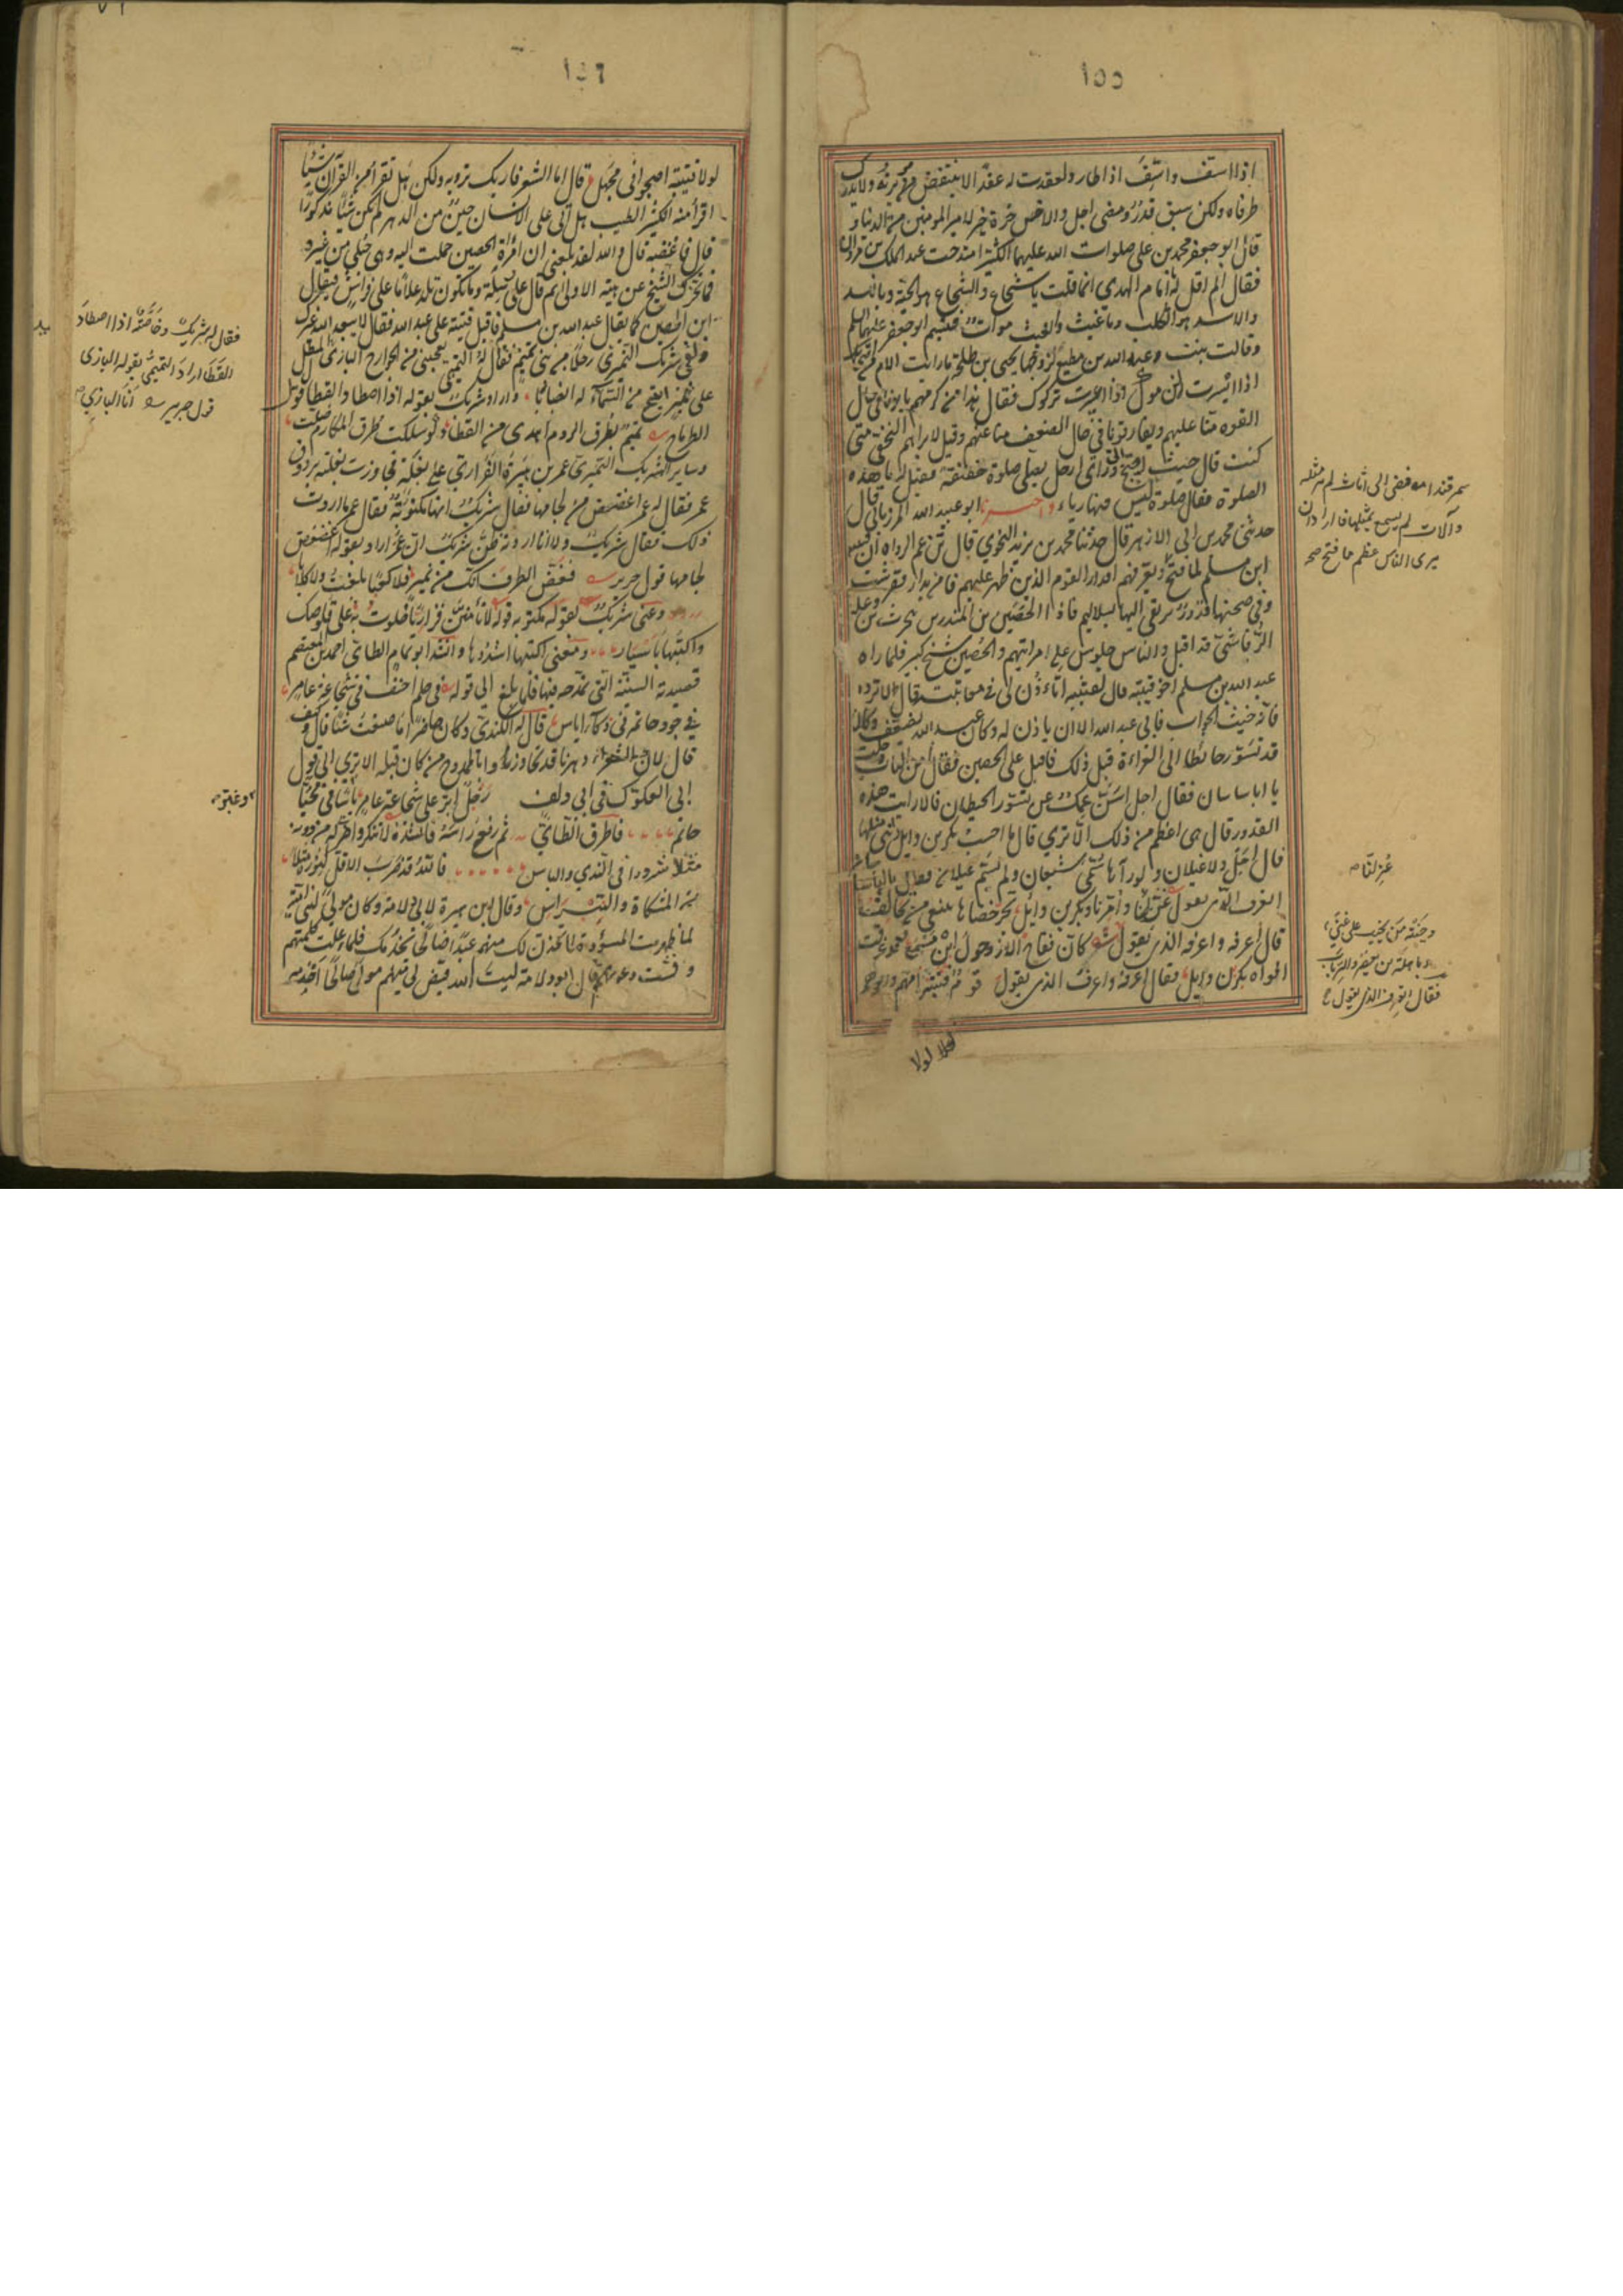 ١٥٥
اذا اسف واسف اذا طار ولعقدت له عقدا لا ينتقض ولا يدرك
طرفاه ولكن سبق قدر ومضى اجل والاخرة خير لامير المومنين من الدنيا و
قال ابو جعفر محمد بن على صلوات الله عليهما لكثير امتدحت عبد الملك بن مروان
فقال لم اقل له يا امام الهدى انما قلت يا شجاع والشجاع هو الحية ويا اسد
والاسد هو الكلب ويا غيث والغيث موات فتبسم ابو جعفر عليهما السلم
وقالت بنت عبد الله بن مطيع لزوجها يحيى بن طلحة ما رايت الام من
اذا ايسرت لزموك اذا اعسرت تركوك فقال هذا من كرمهم ياتوننا فى حال
القوة منا عليهم ويفارقوننا فى حال الضعف منا عنهم وقيل لابراهيم النخعى متى
كنت قال حيث احتيج الى وراى رجل يصلى صلوة خفيفة فقيل له ما هذه
الصلوة فقال صلوة ليس فيها رياء واخبرنا ابو عبيد الله المرزبانى قال
حدثنى محمد بن ابى الازهر قال حدثنا محمد بن يزيد النحوى قال زعم الرواة ان قتيبة
ابن مسلم لما فتح ويعرفهم اقدار القوم الذين ظهر عليهم فامر بدار ففرشت
وفى صحنها قدور يرتقى اليها بسلاليم فاذا الحضين بن المنذر بن الحرث بن وعلة
الرقاشى قد اقبل والناس جلوس على مراتبهم والحضين شيخ كبير فلما راه
عبد الله بن مسلم اخو قتيبة قال لقتيبة اتأذن لى فى معاتبته قال لا ترده
فانه خبيث الجواب فابى عبد الله الا ان ياذن له وكان عبد الله يضعف وكان
قد تسور حائطا الى امراة قبل ذلك فاقبل على الحضين فقال أمن الباب دخلت
يا ابا ساسان فقال اجل اسن عمك عن تسور الحيطان قال ارايت هذه
القدور قال هى اعظم من ذلك الا ترى قال ما احسب بكر بن وايل راى مثلها
قال اجل ولا غيلان ولو رآها سمى شبعان ولم يسم غيلان فقال يا ابا ساسان
اتعرف الذى يقول عزلنا وامرنا وبكر بن وايل تجر خصاها تبتغى من تحالف
قال اعرفه واعرف الذى يقول كان فقاح الازد حول ابن مسمع وقد عرقت
افواه بكر بن وايل فقال اعرفه واعرف الذى يقول قوم قتيبة امهم وابوهم
لولا
سمرقند افضى الى اثاث لم ير مثله
وآلات لم يسمع بمثلها فاراد ان
يرى الناس عظم ما فتح صح
عزلنا
وخيبة من يخيب على غنى
وباهلة بن يعصر والرباب
فقال اتعرف الذى يقول
١٥٦
لولا قتيبة اصبحوا فى مجهل قال اما الشعر فاراك ترويه ولكن هل تقرأ من القرآن شيئا
اقرأ منه الكثير الطيب هل اتى على الانسان حين من الدهر لم يكن شيئا مذكورا
قال فاغضبه قال والله لقد بلغنى ان امرأة الحضين حملت اليه وهى حبلى من غيره
فما تحرك الشيخ عن هيئته الاولى ثم قال على رسله وما يكون تلد غلاما على فراشى فيقال
ابن الحضين كما يقال عبد الله بن مسلم فاقبل قتيبة على عبد الله فقال لا يبعد الله غيرك
ولقى شريك النميرى رجلا من بنى تميم فقال له التميمى يعجبنى من الجوارح البازى
على نمير اتيح من السماء له انصبابا واراد شريك بقوله اذا اصطاد القطا قول
الطرماح تميم بطرق اللوم اهدى من القطا ولو سلكت طرق المكارم ضلت
وساير شريك النميرى عمر بن هبيرة الفزارى على بغلة فجاوزت بغلته برذون
عمر فقال له عمر اغضض من لجامها فقال شريك انها مكتوبة فقال عمر ما اردت
ذلك فقال شريك ولا انا اردته ظن شريك ان عمر اراد بقوله اغضض
لجامها قول جرير فغض الطرف انك من نمير فلا كعبا بلغت ولا كلابا
وعنى شريك بقوله مكتوبة قوله لا تأمنن فزاريا خلوت به على قلوصك
واكتبها باسيار ومعنى اكتبها اشددها وانشد ابو تمام الطائى احمد بن المعتصم
قصيدته السينية التى يمدحه فيها فلما بلغ الى قوله فى حلم احنف فى شجاعة عامر
فى جود حاتم فى ذكاء اياس قال له الكندى وكان حاضرا ما صنعت شيئا قال وكيف
قال لان الشعراء دهرنا قد تجاوزوا بالممدوح من كان قبله الا ترى الى قول
ابى العكوك فى ابى دلف رجل ابر على شجاعة عامر باسا فى محيا
حاتم فاطرق الطائى ثم رفع راسه فانشده لا تنكروا ضربى له من دونه
مثلا شرودا فى الندى والباس فالله قد ضرب الاقل لنوره مثلا
من المشكاة والنبراس وقال ابن هبيرة لابى دلامة وكان مولى لبنى اسد
لما ظهرت المسودة لاتخذن لك منهم عبدا صالحا تخدمك فلما علت كلمتهم
وفشت دعوتهم قال ابو دلامة ليت الله قيض لى منهم مولى صالحا اخدمه
فقال له شريك وخاصة اذا اصطاد
القطا اراد التميمى بقوله البازى
قول جرير انا البازى
وغبر